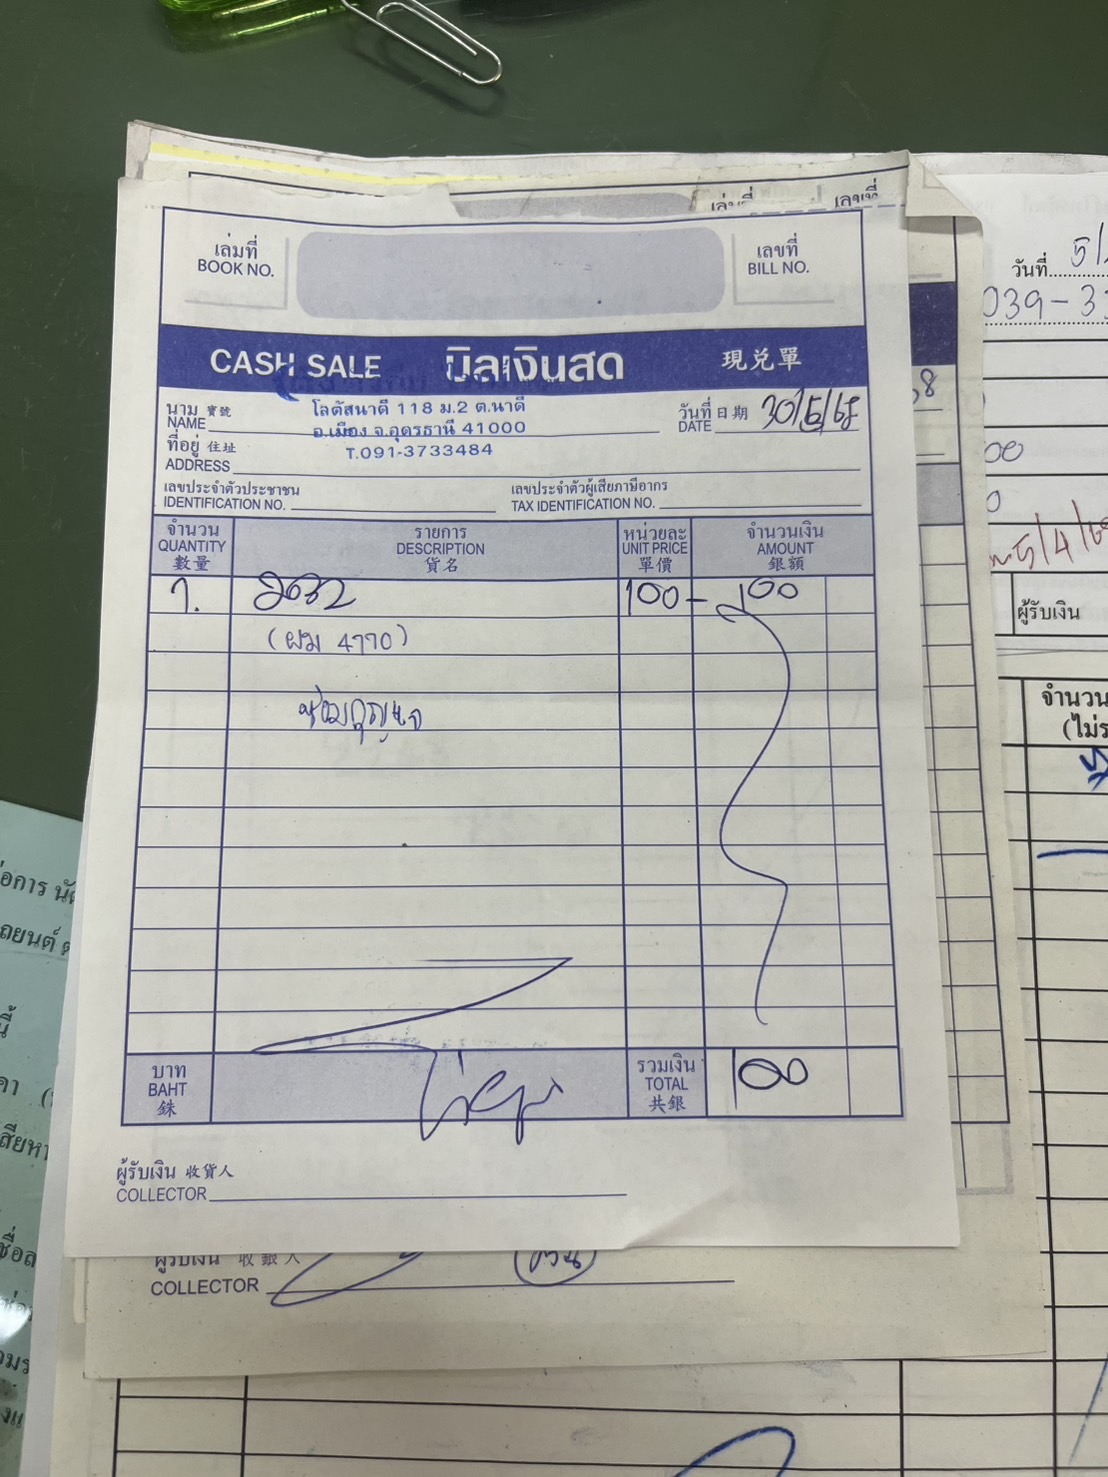 เล่มที่
เลขที่
เล่มที่
BOOK NO.
เลขที่
BILL NO.
CASH SALE บิลเงินสด 現兑單
นาม 寶號
NAME
โลตัสนาดี 118 ม.2 ต.นาดี
อ.เมือง จ.อุดรธานี 41000
T.091-3733484
วันที่ 日期
DATE
30/5/68
ที่อยู่ 住址
ADDRESS
เลขประจำตัวประชาชน
IDENTIFICATION NO.
เลขประจำตัวผู้เสียภาษีอากร
TAX IDENTIFICATION NO.
จำนวน
QUANTITY
數量
รายการ
DESCRIPTION
貨名
หน่วยละ
UNIT PRICE
單價
จำนวนเงิน
AMOUNT
銀額
1. 2032 100- 100
(ผม 4770)
ซ่อมกุญแจ
บาท
BAHT
銖
รวมเงิน
TOTAL
共銀
100
ผู้รับเงิน 收貨人
COLLECTOR
ผู้รับเงิน 收銀人
COLLECTOR
วันที่ 5/
039-33
68
00
5/4/6
ผู้รับเงิน
จำนวน
(ไม่ร